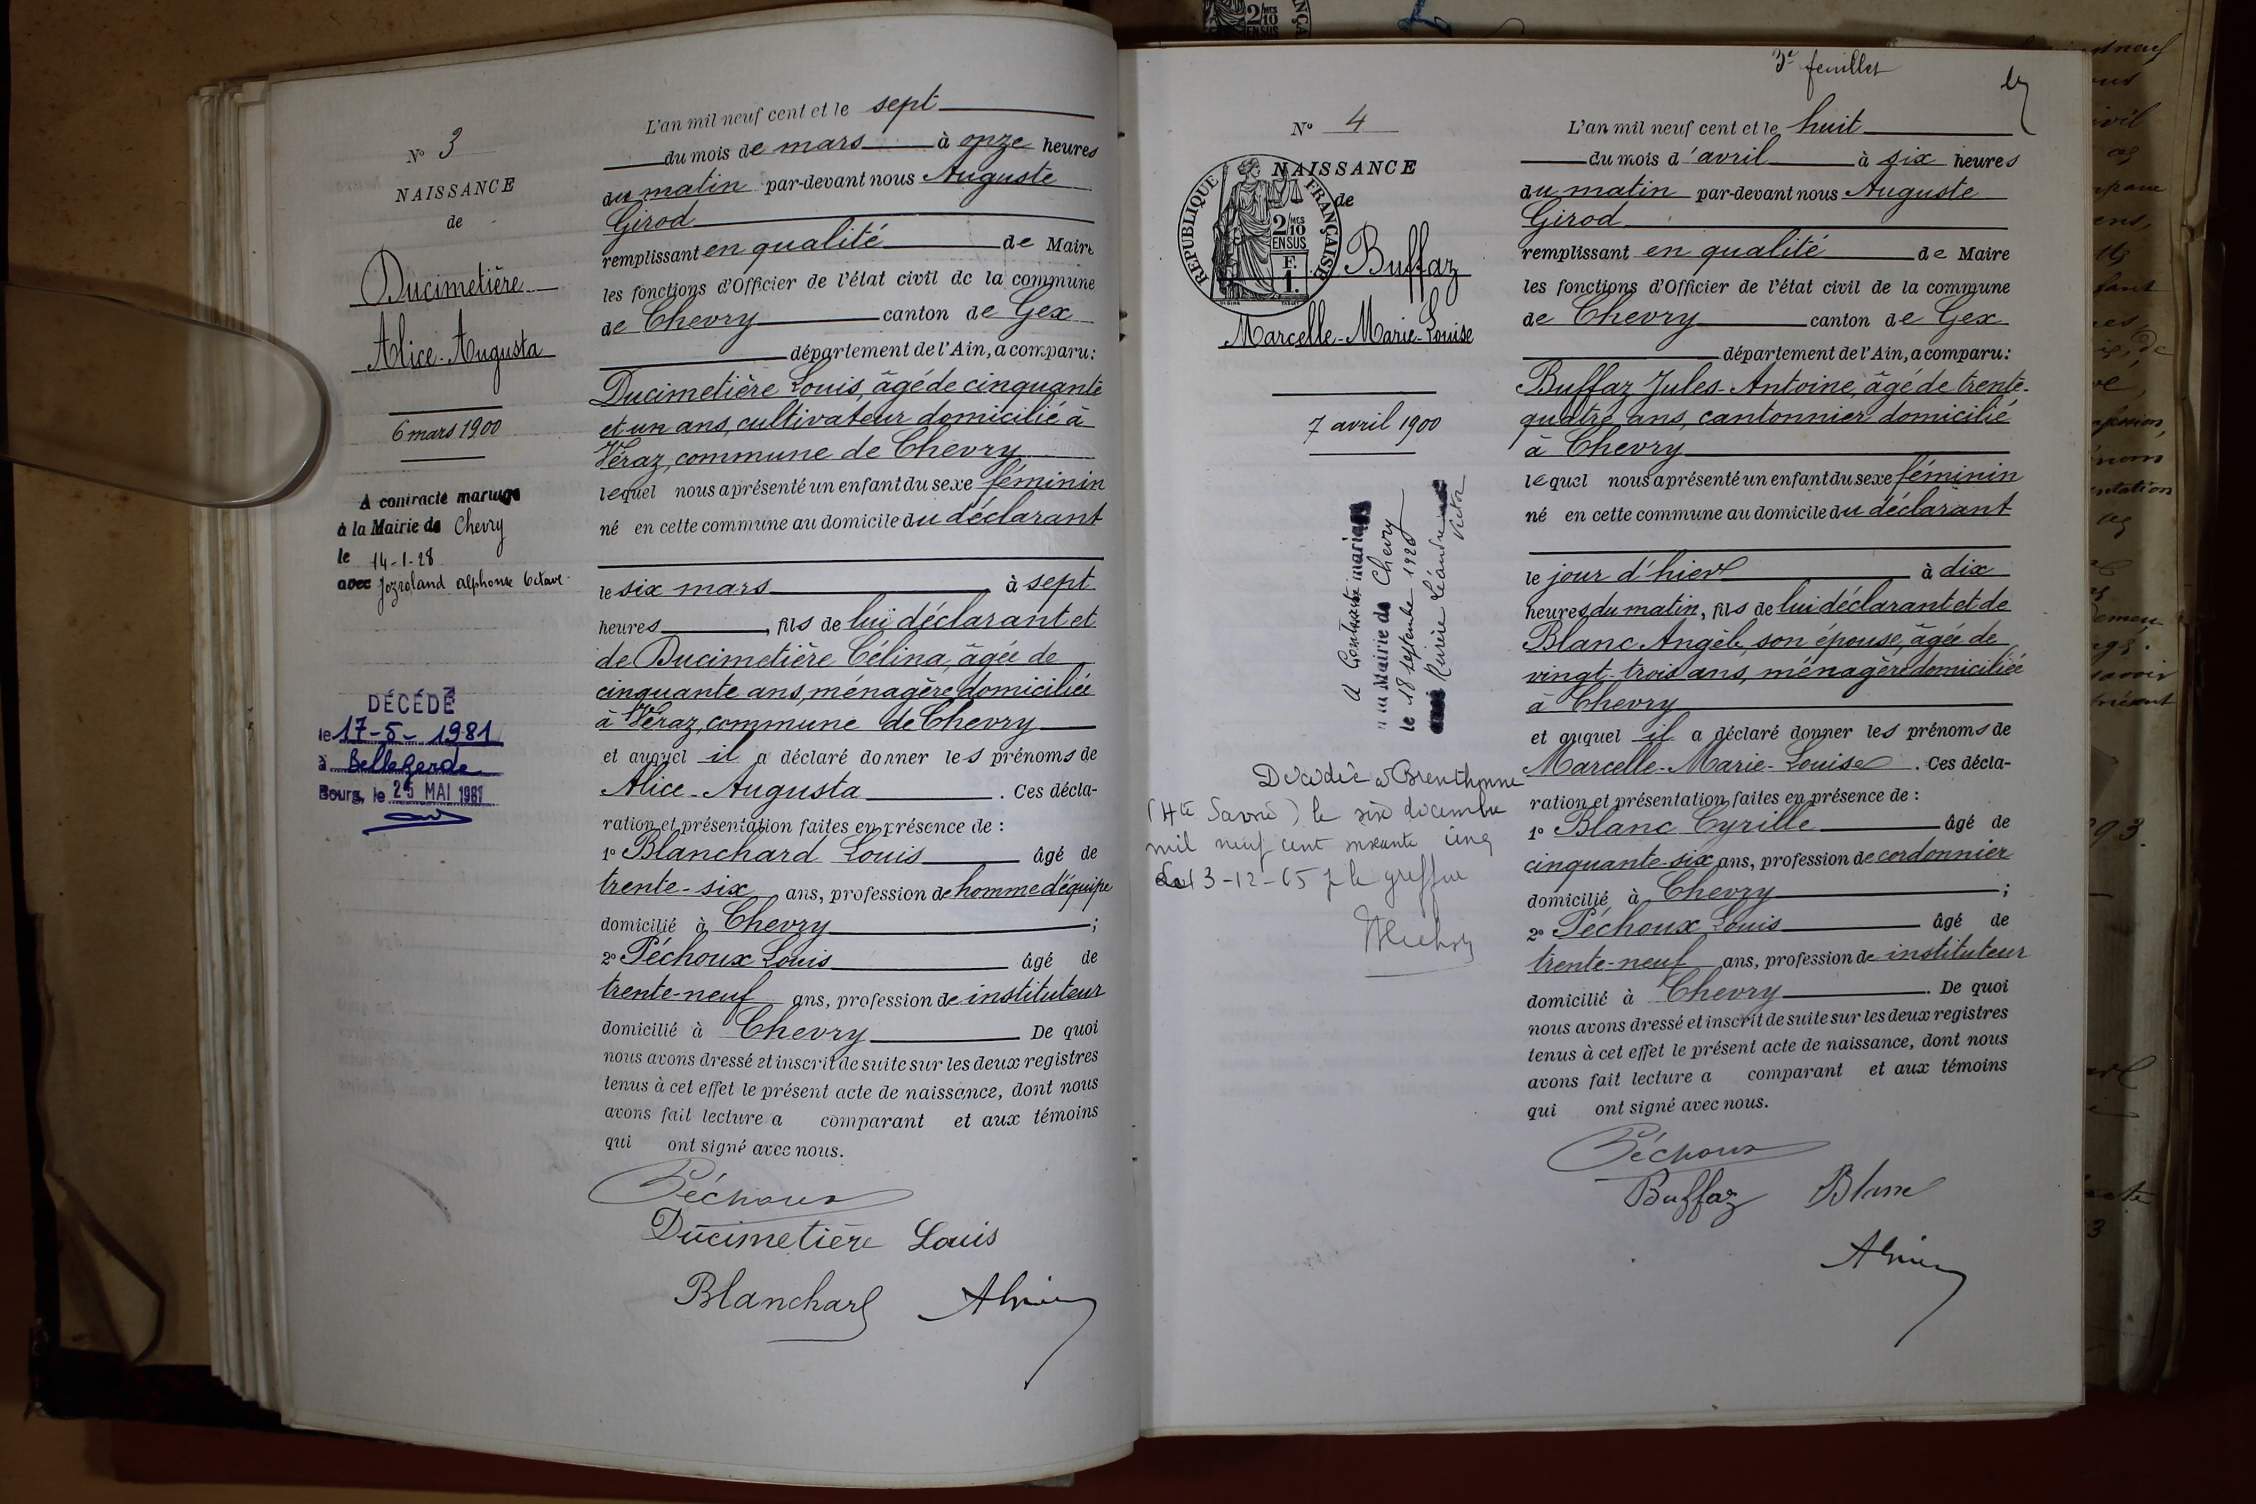 N° 3
NAISSANCE
de
Ducimetière
Alice-Augusta
6 mars 1900
A contracté mariage
à la Mairie de Chevry
le 14-1-28
avec alphonse Octave
DÉCÉDÉ
le 17-5-1981
à Bellegarde
Bourg, le 25 MAI 1981
L'an mil neuf cent et le sept
du mois de mars à onze heures
du matin par-devant nous Auguste
Girod
remplissant en qualité de Maire
les fonctions d'Officier de l'état civil de la commune
de Chevry canton de Gex
département de l'Ain, a comparu:
Ducimetière Louis, âgé de cinquante
et un ans, cultivateur domicilié à
Véraz, commune de Chevry
lequel nous a présenté un enfant du sexe féminin
né en cette commune au domicile du déclarant
le six mars à sept
heures, fils de lui déclarant et
de Ducimetière Célina, âgée de
cinquante ans, ménagère domiciliée
à Véraz, commune de Chevry
et auquel il a déclaré donner les prénoms de
Alice-Augusta. Ces décla-
ration et présentation faites en présence de :
1° Blanchard Louis âgé de
trente-six ans, profession de homme d'équipe
domicilié à Chevry ;
2° Péchoux Louis âgé de
trente-neuf ans, profession de instituteur
domicilié à Chevry De quoi
nous avons dressé et inscrit de suite sur les deux registres
tenus à cet effet le présent acte de naissance, dont nous
avons fait lecture a comparant et aux témoins
qui ont signé avec nous.
Péchoux
Ducimetière Louis
Blanchard
3e feuillet
N° 4
NAISSANCE
de
RÉPUBLIQUE FRANÇAISE
2/10 MES
EN SUS
F.
1.
Buffaz
Marcelle-Marie-Louise
7 avril 1900
A Contracté mariage
à la Mairie de Chevry
le 18 septembre 1926
Léandre
Victor
Décédée à Brenthonne
(Hte Savoie) le six décembre
mil neuf cent soixante cinq
13-12-65 p le greffier
L'an mil neuf cent et le huit
du mois d'avril à six heures
du matin par-devant nous Auguste
Girod
remplissant en qualité de Maire
les fonctions d'Officier de l'état civil de la commune
de Chevry canton de Gex
département de l'Ain, a comparu:
Buffaz Jules-Antoine, âgé de trente-
quatre ans, cantonnier domicilié
à Chevry
lequel nous a présenté un enfant du sexe féminin
né en cette commune au domicile du déclarant
le jour d'hier à dix
heures du matin, fils de lui déclarant et de
Blanc Angèle, son épouse, âgée de
vingt-trois ans, ménagère domiciliée
à Chevry
et auquel il a déclaré donner les prénoms de
Marcelle-Marie-Louise. Ces décla-
ration et présentation faites en présence de :
1° Blanc Cyrille âgé de
cinquante-six ans, profession de cordonnier
domicilié à Chevry ;
2° Péchoux Louis âgé de
trente-neuf ans, profession de instituteur
domicilié à Chevry. De quoi
nous avons dressé et inscrit de suite sur les deux registres
tenus à cet effet le présent acte de naissance, dont nous
avons fait lecture a comparant et aux témoins
qui ont signé avec nous.
Péchoux
Buffaz Blanc